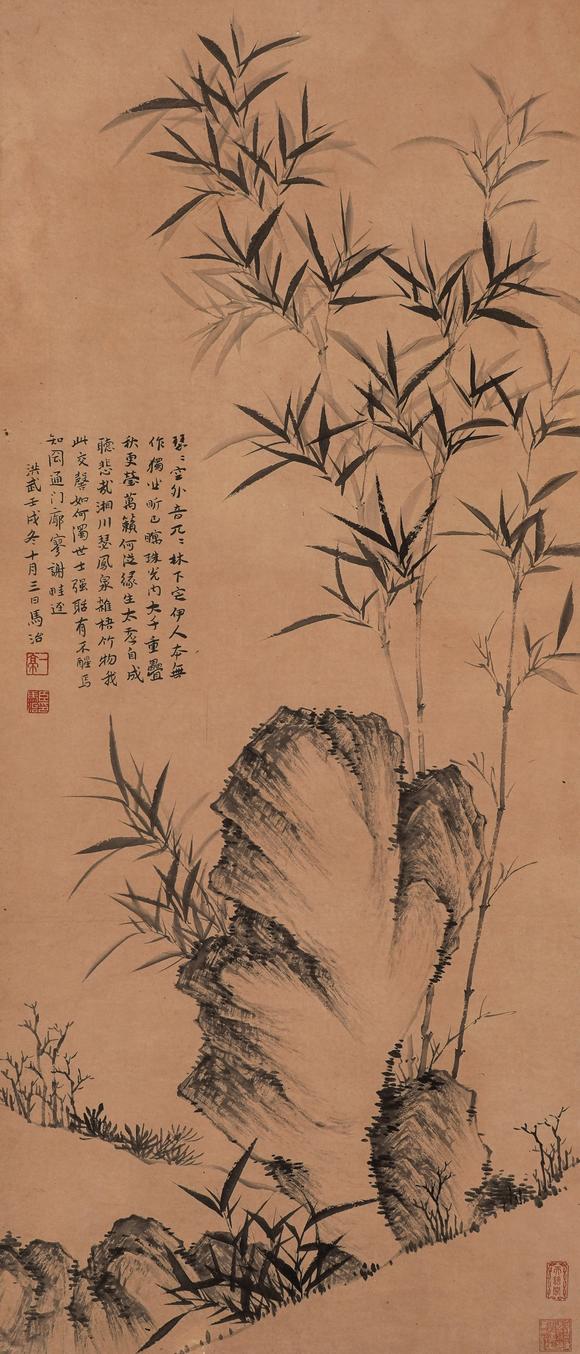 琴々空外音兀々林下宅伊人本無
作獨坐昕已曛珠光内大千重疊
秋更瑩萬籟何從緣生太虛自成
聽悲哉湘川瑟風泉雜梧竹物我
此交馨如何濁世士強聒有不醒焉
知圓通门廊寥謝畦逕
洪武壬戌冬十月三日馬治